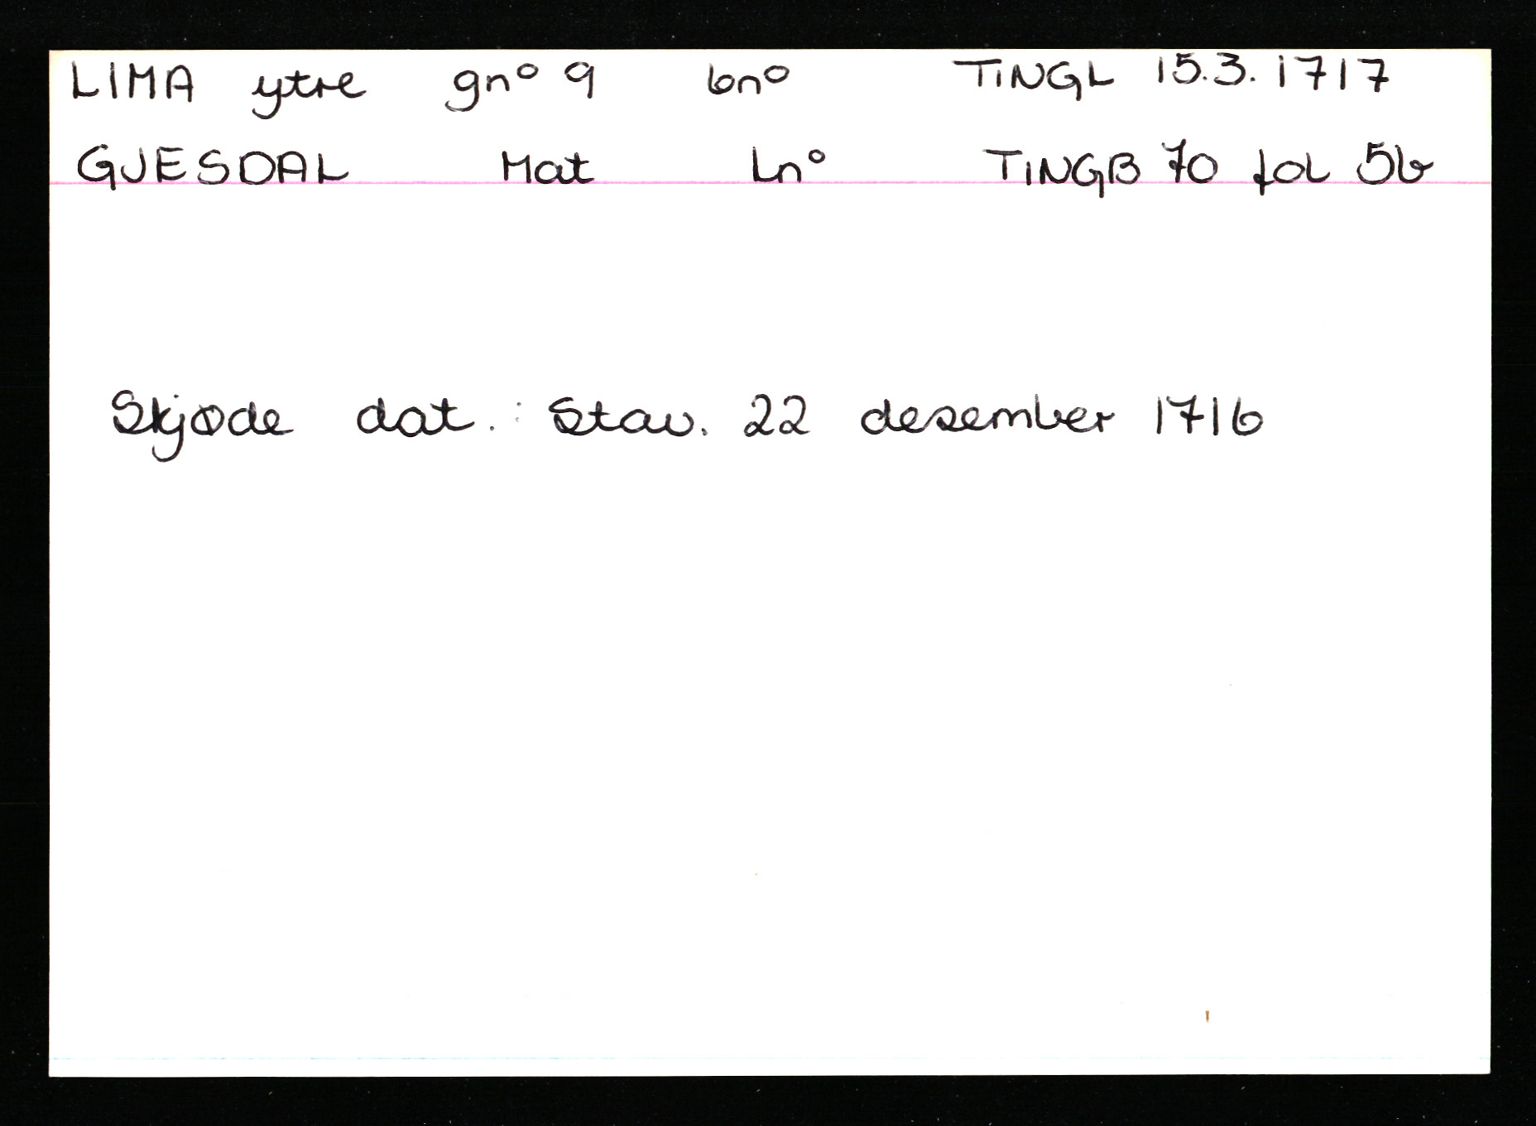 LIMA ytre gnº 9 bnº TiNGL 15.3.1717
GJESDAL Mat Lnº TiNGB 70 fol 5b
Skjøde dat. Stav. 22 desember 1716